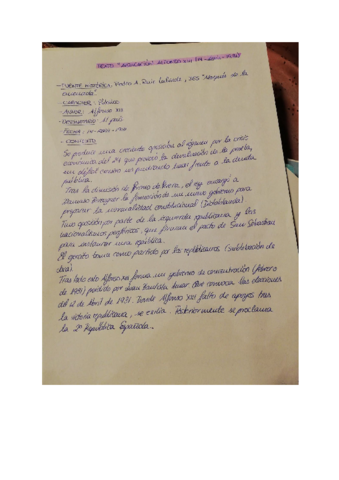 TEXTO "ABDICACIÓN" ALFONSO XIII
- FUENTE HISTÓRICA: Pedro A. Ruiz Lalinde, IES "Duques de
- CARÁCTER: Público
- AUTOR: Alfonso XIII
- DESTINATARIO: El país
- FECHA: 14-abril-1931
- CONTEXTO:
Se produce una creciente oposición al rey por la crisis
económica del 29 que provocó la devaluación de la peseta,
un déficit frente a la deuda
pública.
Tras la dimisión de Primo de Rivera, el rey encargó a
Dámaso Berenguer la formación de un nuevo gobierno para
preparar la normalidad constitucional (Dictablanda)
Tuvo oposición por parte de la izquierda republicana y los
nacionalismos periféricos, que firmaron el pacto de San Sebastián
para instaurar una república.
El ejército toma como partido por los republicanos (sublevación de
Jaca).
Tras todo esto Alfonso XIII forma un gobierno de concentración (febrero
de 1931) presidido por Juan Bautista Aznar que convoca las elecciones
del 12 de Abril de 1931. Donde Alfonso XIII falto de apoyos tras
la victoria republicana, se exilia. Posteriormente se proclama
la 2ª República Española.